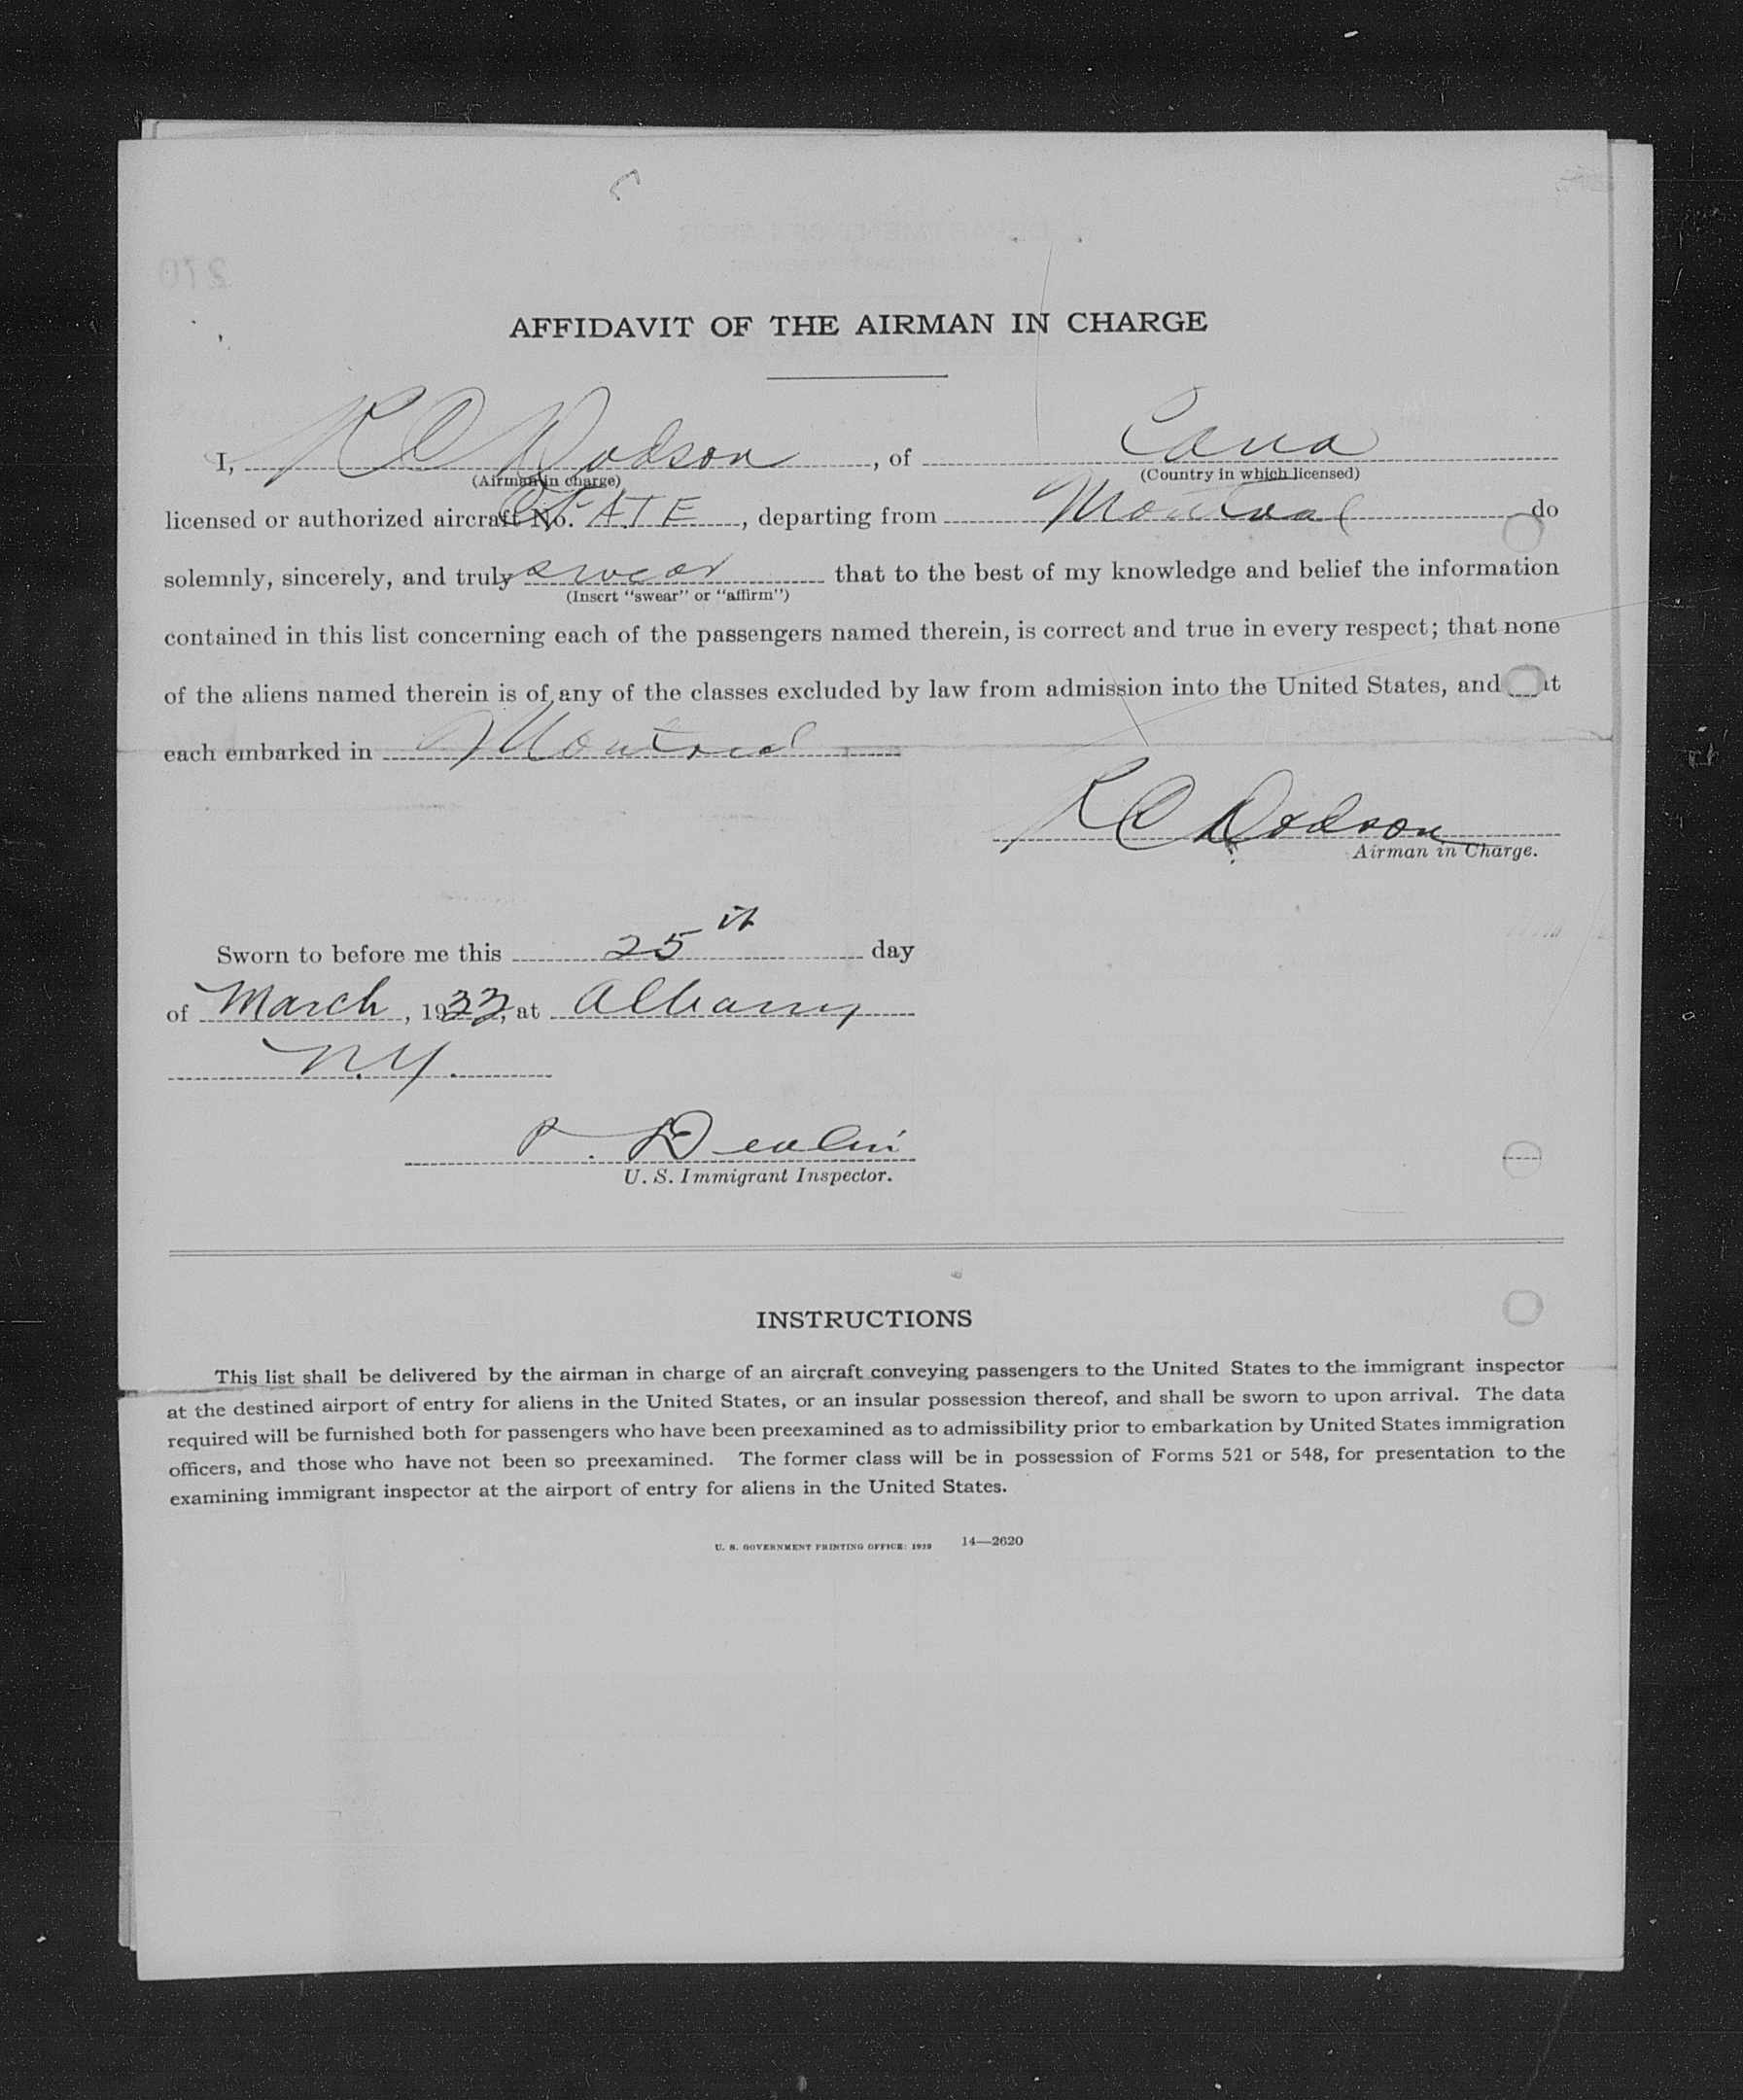 AFFIDAVIT OF THE AIRMAN IN CHARGE
I, R C Dodson, of Cana
(Airman in charge) (Country in which licensed)
licensed or authorized aircraft No. CF ATE, departing from Montreal do
solemnly, sincerely, and truly swear that to the best of my knowledge and belief the information
(Insert "swear" or "affirm")
contained in this list concerning each of the passengers named therein, is correct and true in every respect; that none
of the aliens named therein is of any of the classes excluded by law from admission into the United States, and at
each embarked in Montreal
R C Dodson
Airman in Charge.
Sworn to before me this 25th day
of March, 1933, at Albany
N.Y.
P. Devlin
U. S. Immigrant Inspector.
INSTRUCTIONS
This list shall be delivered by the airman in charge of an aircraft conveying passengers to the United States to the immigrant inspector
at the destined airport of entry for aliens in the United States, or an insular possession thereof, and shall be sworn to upon arrival. The data
required will be furnished both for passengers who have been preexamined as to admissibility prior to embarkation by United States immigration
officers, and those who have not been so preexamined. The former class will be in possession of Forms 521 or 548, for presentation to the
examining immigrant inspector at the airport of entry for aliens in the United States.
U. S. GOVERNMENT PRINTING OFFICE: 1929 14—2620